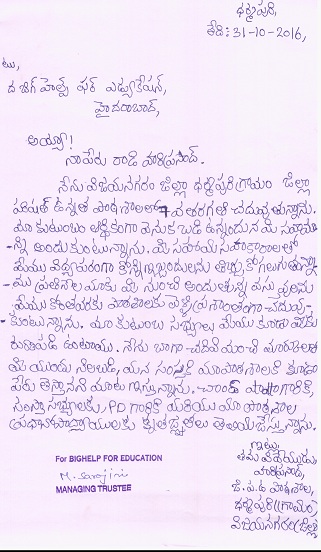 ధర్మపురి,
తేది: 31-10-2016,
టు,
ద బిగ్ హెల్ప్ ఫర్ ఎడ్యుకేషన్,
హైదరాబాద్,
అయ్యా!
నా పేరు రాడి హరిప్రసాద్.
నేను విజయనగరం జిల్లా ధర్మపురి గ్రామం జిల్లా
పరిషత్ ఉన్నత పాఠశాలలో 7వ తరగతి చదువుతున్నాను.
మా కుటుంబం ఆర్థికంగా వెనుకబడి ఉన్నందున మీ సహాయా
-న్ని అందుకుంటున్నాను. మీ సహాయ సహకారాలతో
మేము విద్యాపరంగా కొన్ని ఇబ్బందులను
ము ప్రతినెల మాకు మీ నుంచి అందుతున్న వస్తువులను
మేము పాఠశాలకు ప్రశాంతంగా చదువు-
కుంటున్నాను. మా కుటుంబ సభ్యులు మేము కూడా మీకు
రుణపడి ఉంటాము. నేను బాగా చదివి మంచి మార్కులతో
మీ ముందు నిలబడి, మన సంస్థకి మా పాఠశాలకి కూడా
పేరు తెస్తానని మాట ఇస్తున్నాను. చాంద్ పాషా గారికి,
సంస్థ సభ్యులకు, PD గారికి మరియు మా పాఠశాల
ప్రధానోపాధ్యాయులకు కృతజ్ఞతలు తెలియజేస్తున్నాను.
ఇట్లు,
తమ విధేయుడు,
హరిప్రసాద్,
జి.ప.ఉ పాఠశాల,
ధర్మపురి (గ్రామం)
విజయనగరం (జిల్లా)
For BIGHELP FOR EDUCATION
M. Sarojini
MANAGING TRUSTEE